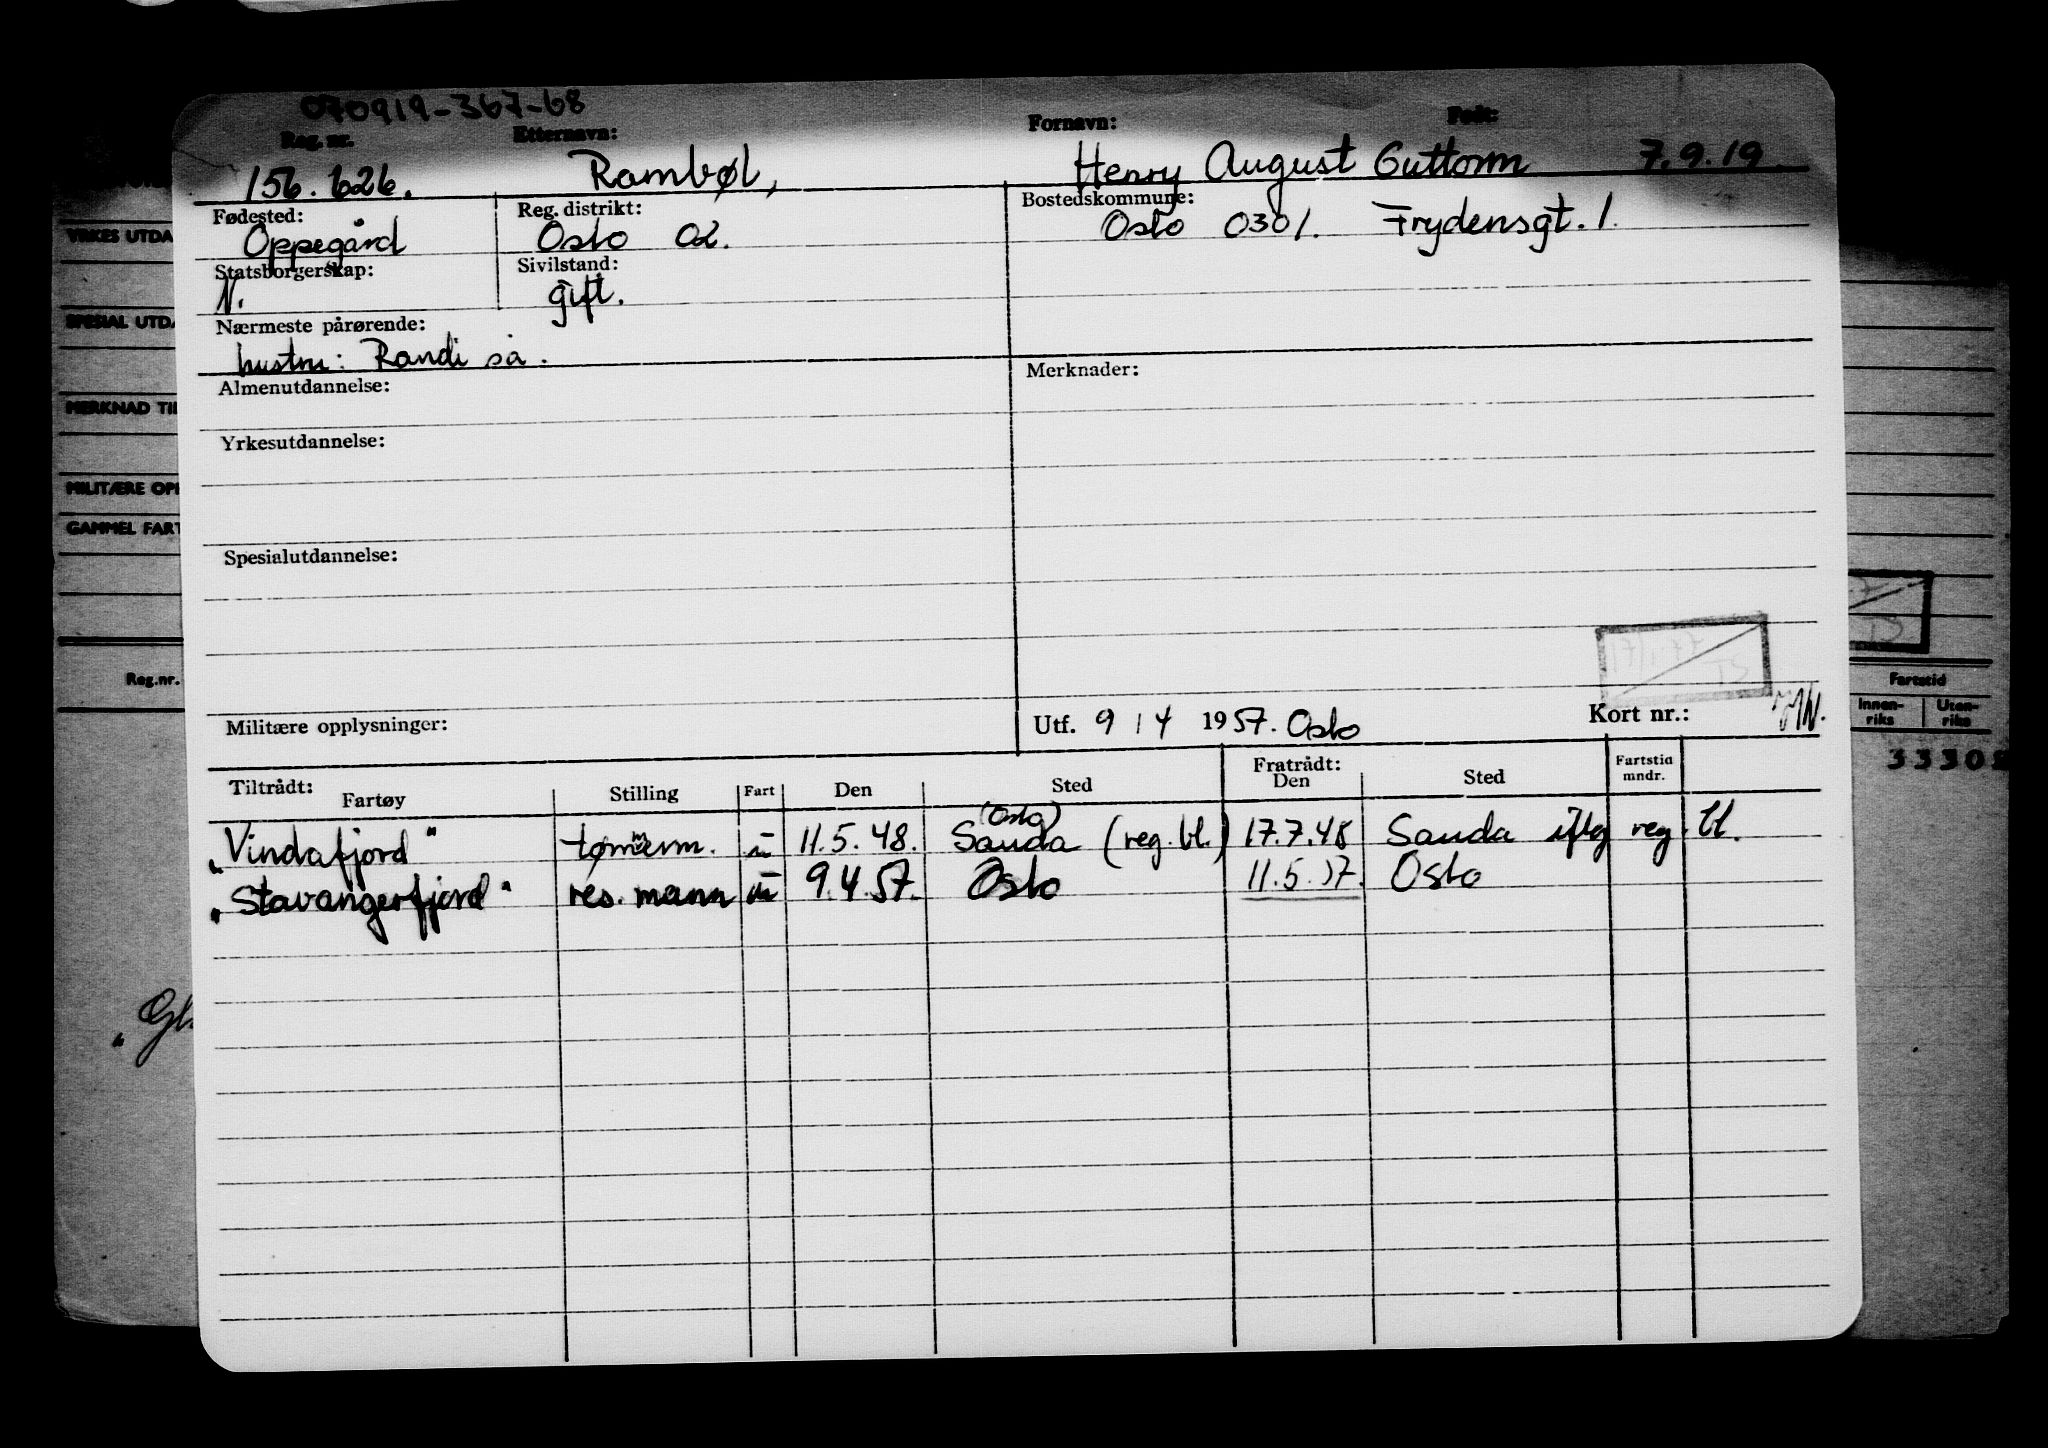 070919-367-68
Reg. nr. Etternavn: Fornavn: Født:
156.626. Rambøl, Henry August Guttorm 7.9.19.
Fødested: Reg. distrikt: Bostedskommune:
Oppegård Oslo 02. Oslo 0301. Frydensgt. 1.
Statsborgerskap: Sivilstand:
N. gift.
Nærmeste pårørende:
hustru: Randi sa.
Almenutdannelse: Merknader:
Yrkesutdannelse:
Spesialutdannelse:
Militære opplysninger: Utf. 9 / 4 1957. Oslo Kort nr.:
Tiltrådt: Fratrådt: Fartstid
Fartøy Stilling Fart Den Sted Den Sted mndr.
(Oslo)
"Vindafjord" tømmerm. u 11.5.48. Sauda (reg. bl.) 17.7.48 Sauda iflg reg. bl.
"Stavangerfjord" res. mann u 9.4.57. Oslo 11.5.57. Oslo
YRKES UTDA
SPESIAL UTDA
MERKNAD TIL
MILITÆRE OPP
GAMMEL FART
Reg.nr.
"Gl
Fartstid
Innen-riks Uten-riks
3330